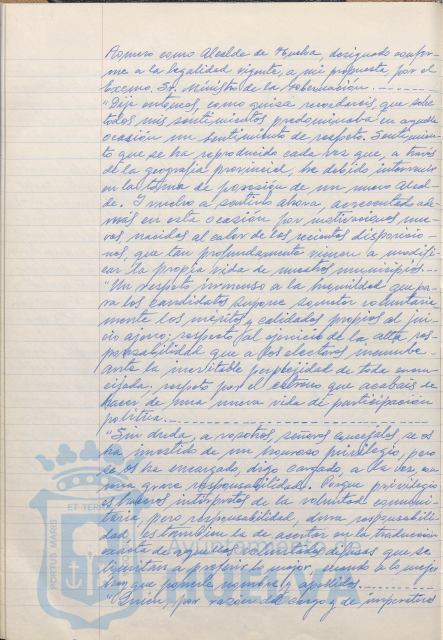 Romero como Alcalde de Huelva, designado confor-
me a la legalidad vigente, a mi propuesta, por el
Excmo. Sr. Ministro de la Gobernación.
"Dije entonces, como quizá recordareis, que sobre
todos mis sentimientos predominaba en aquella
ocasión un sentimiento de respeto. Sentimien-
to que se ha reproducido cada vez que, a través
de la geografía provincial, he debido intervenir
en la toma de posesión de un nuevo Alcal-
de. Y vuelvo a sentirlo ahora, acrecentado ade-
más en esta ocasión por motivaciones nue-
vas, nacidas al calor de las recientes disposicio-
nes, que tan profundamente vienen a modifi-
car la propia vida de nuestros municipios.
"Un respeto inmenso a la humildad que pa-
ra los candidatos supone someter voluntaria-
mente los méritos y calidades propios al jui-
cio ajeno; respeto, al ejercicio de la alta res-
ponsabilidad que a los electores incumbe
ante la inevitable perplejidad de toda encru-
cijada; respeto por el estreno que acabais de
hacer de una nueva vida de participación
política.
"Sin duda, a vosotros, señores concejales, se os
ha investido de un honroso privilegio, pero
se os ha encargado, digo cargado, a la vez, con
una grave responsabilidad. Porque privilegio
es haceros intérpretes de la voluntad comuni-
taria, pero responsabilidad, dura responsabili-
dad, es también la de acertar en la traducción
exacta de aquellas voluntades difusas que se
limitan a preferir lo mejor cuando a lo mejor
hay que ponerle nombre y apellidos.
"Quien, por razón del cargo y de imperativo
PORTUS MARIS
ET TERR
HUELVA